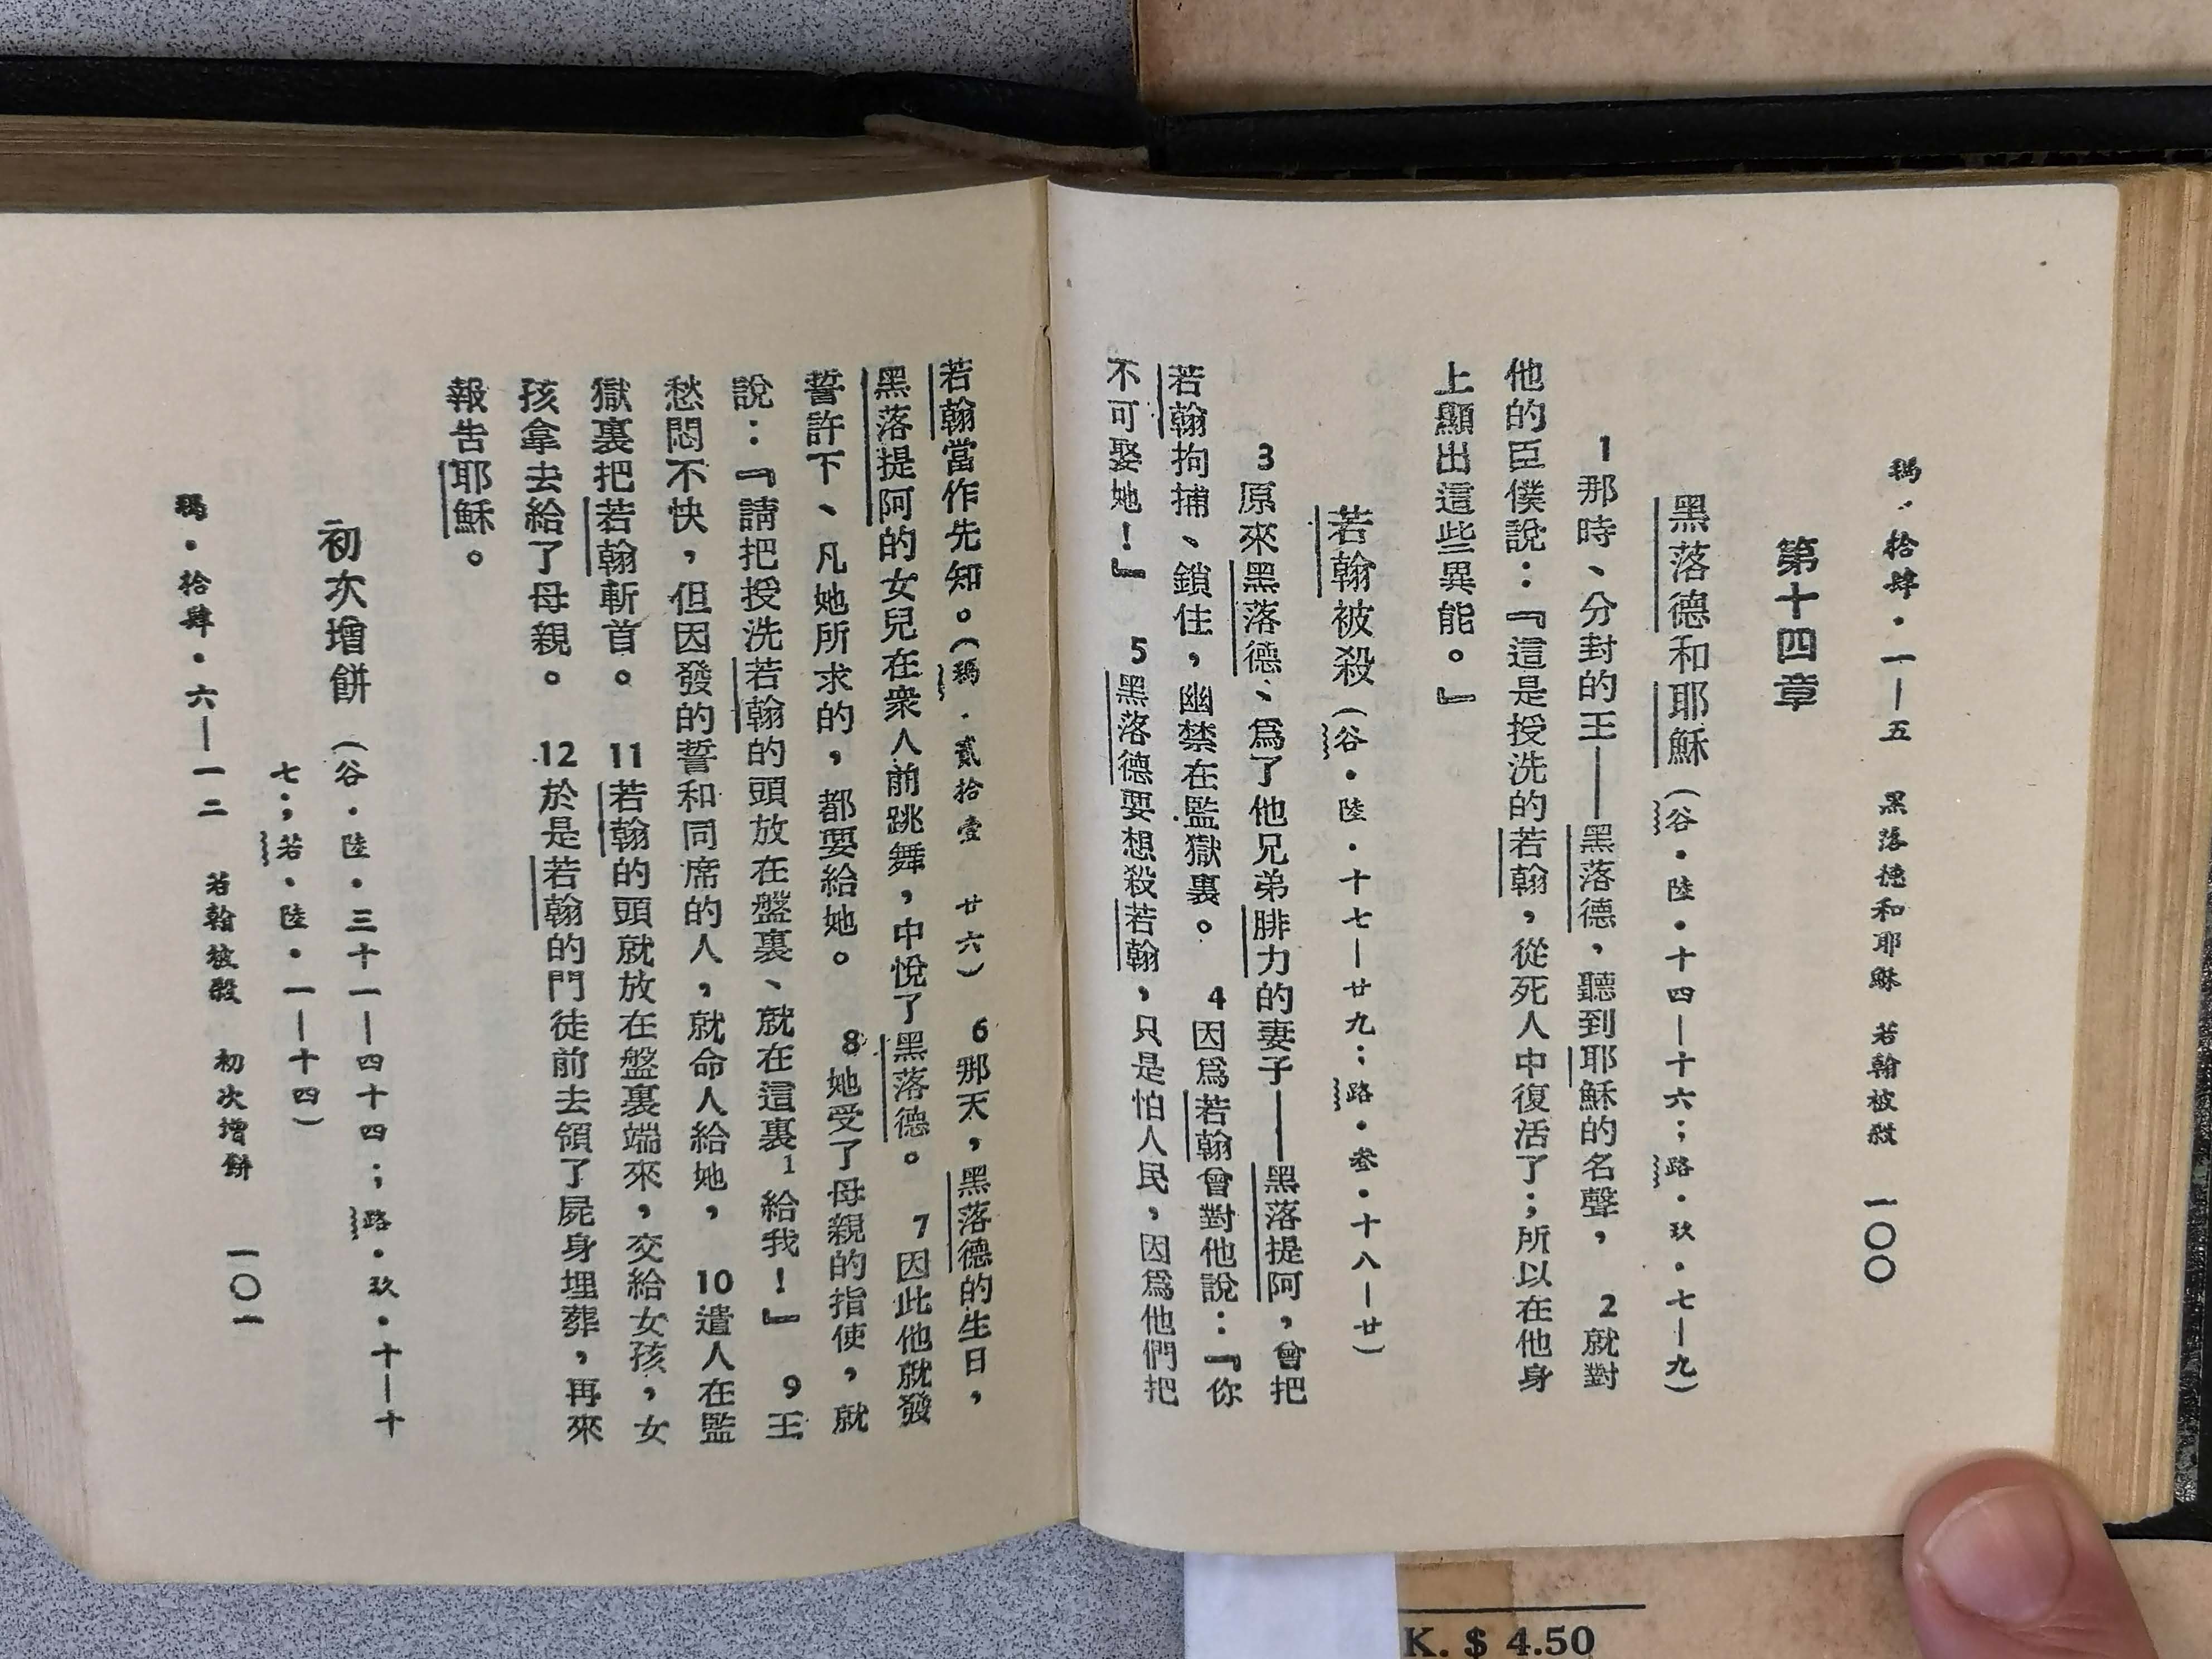 瑪・拾肆・一—五　黑落德和耶穌　若翰被殺　一〇〇
第十四章
黑落德和耶穌（谷・陸・十四—十六；路・玖・七—九）
1那時、分封的王——黑落德，聽到耶穌的名聲，　2就對
他的臣僕說：『這是授洗的若翰，從死人中復活了；所以在他身
上顯出這些異能。』
若翰被殺（谷・陸・十七—廿九；路・叁・十八—廿）
3原來黑落德、爲了他兄弟腓力的妻子——黑落提阿，曾把
若翰拘捕、鎖住，幽禁在監獄裏。　4因爲若翰曾對他說：『你
不可娶她！』　5黑落德要想殺若翰，只是怕人民，因爲他們把
若翰當作先知。（瑪・貳拾壹　廿六）　6那天，黑落德的生日，
黑落提阿的女兒在衆人前跳舞，中悅了黑落德。　7因此他就發
誓許下、凡她所求的，都要給她。　8她受了母親的指使，就
說：『請把授洗若翰的頭放在盤裏、就在這裏1給我！』　9王
愁悶不快，但因發的誓和同席的人，就命人給她，　10遣人在監
獄裏把若翰斬首。　11若翰的頭就放在盤裏端來，交給女孩，女
孩拿去給了母親。　12於是若翰的門徒前去領了屍身埋葬，再來
報告耶穌。
初次增餅（谷・陸・三十一—四十四；路・玖・十—十
七；若・陸・一—十四）
瑪・拾肆・六—一二　若翰被殺　初次增餅　一〇一
K. $ 4.50